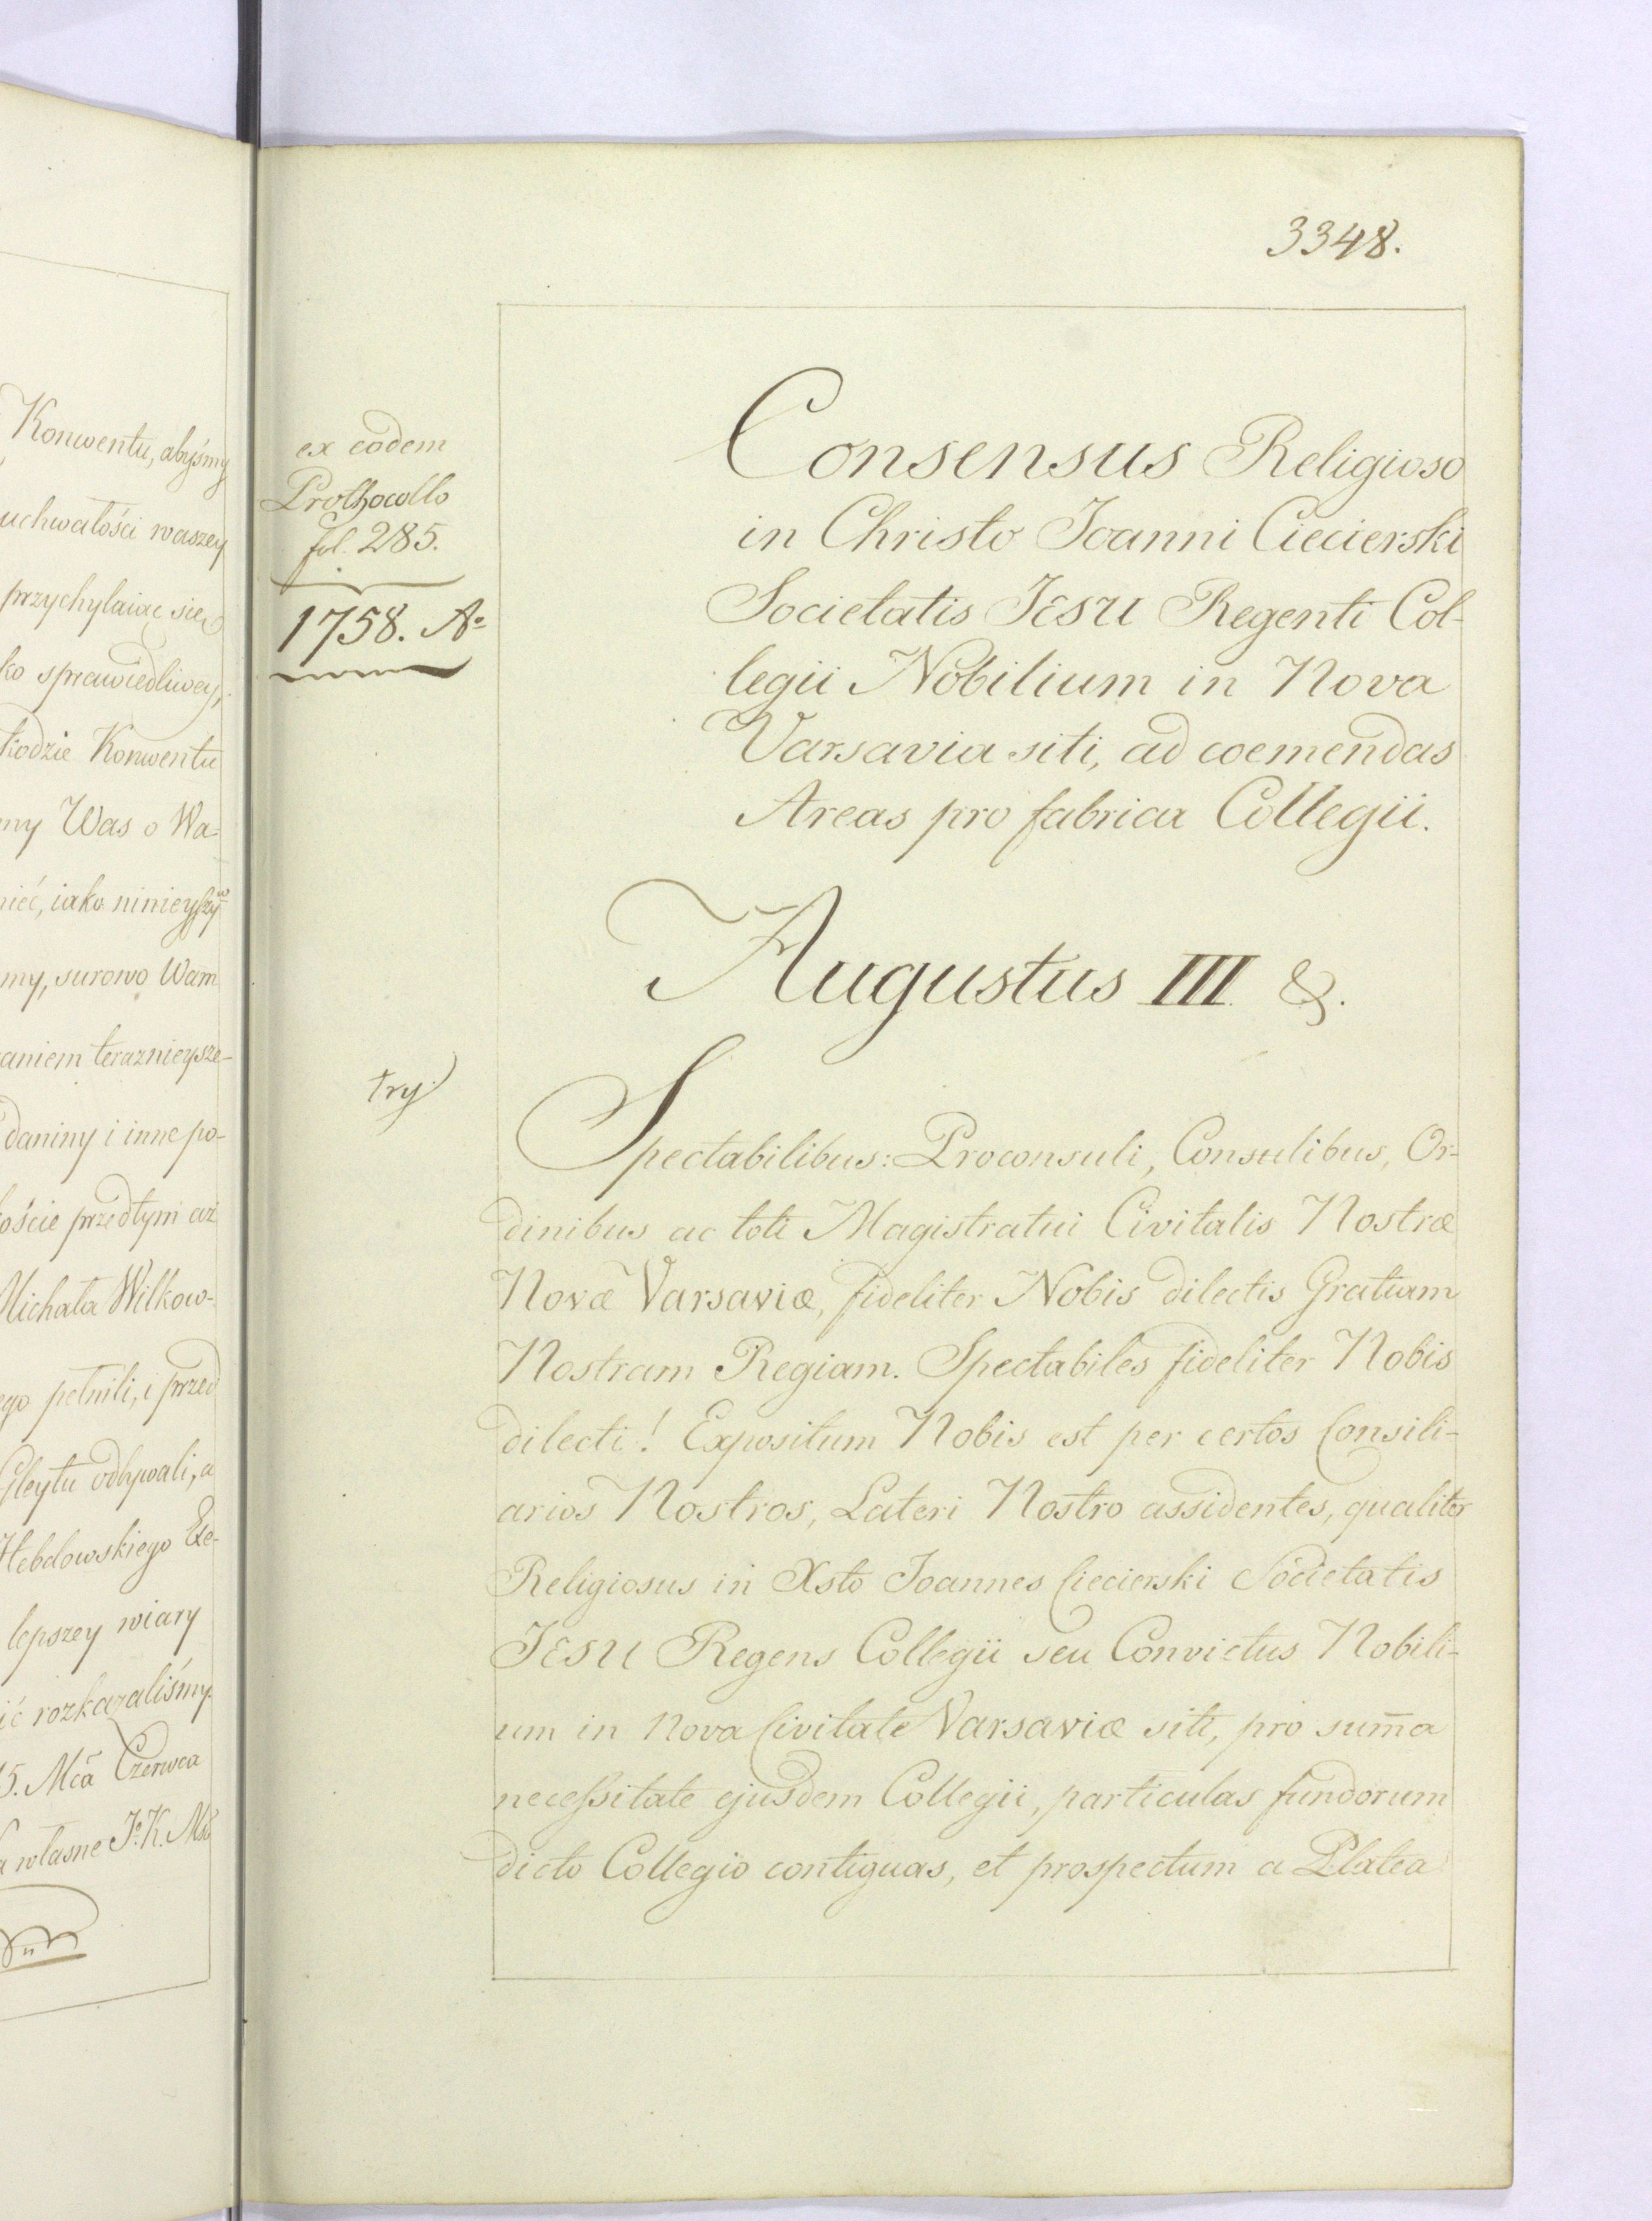 Konwentu, abyśmy
uchwałości waszey
przychylaiąc się
ko sprawiedliwey,
kodzie Konwentu
my Was o Wa-
nieć, iako ninieyszy
my, surowo Wam
aniem teraznieysze-
daniny i inne po-
oście przedtym aż
Michała Wilkow-
ego pełnili, i przed
Gleytu odbywali, a
Hebdowskiego Exe-
lepszey wiary
ić rozkazaliśmy.
15. Mca Czerwca
a własne J. K. Mć
3348.
ex eodem
Prothocollo
fol. 285.
1758. Ao
Consensus Religioso
in Christo Joanni Ciecierski
Societatis JESU Regenti Col-
legii Nobilium in Nova
Varsavia siti, ad coemendas
Areas pro fabrica Collegii.
Augustus III &.
try
Spectabilibus: Proconsuli, Consulibus, Or-
dinibus ac toti Magistratui Civitatis Nostræ
Novæ Varsaviæ, fideliter Nobis dilectis Gratiam
Nostram Regiam. Spectabiles fideliter Nobis
dilecti! Expositum Nobis est per certos Consili-
arios Nostros, Lateri Nostro assidentes, qualiter
Religiosus in Xsto Joannes Ciecierski Societatis
JESU Regens Collegii seu Convictus Nobili-
um in Nova Civitate Varsaviæ siti, pro sum̄a
necessitate ejusdem Collegii, particulas fundorum
dicto Collegio contiguas, et prospectum a Platea